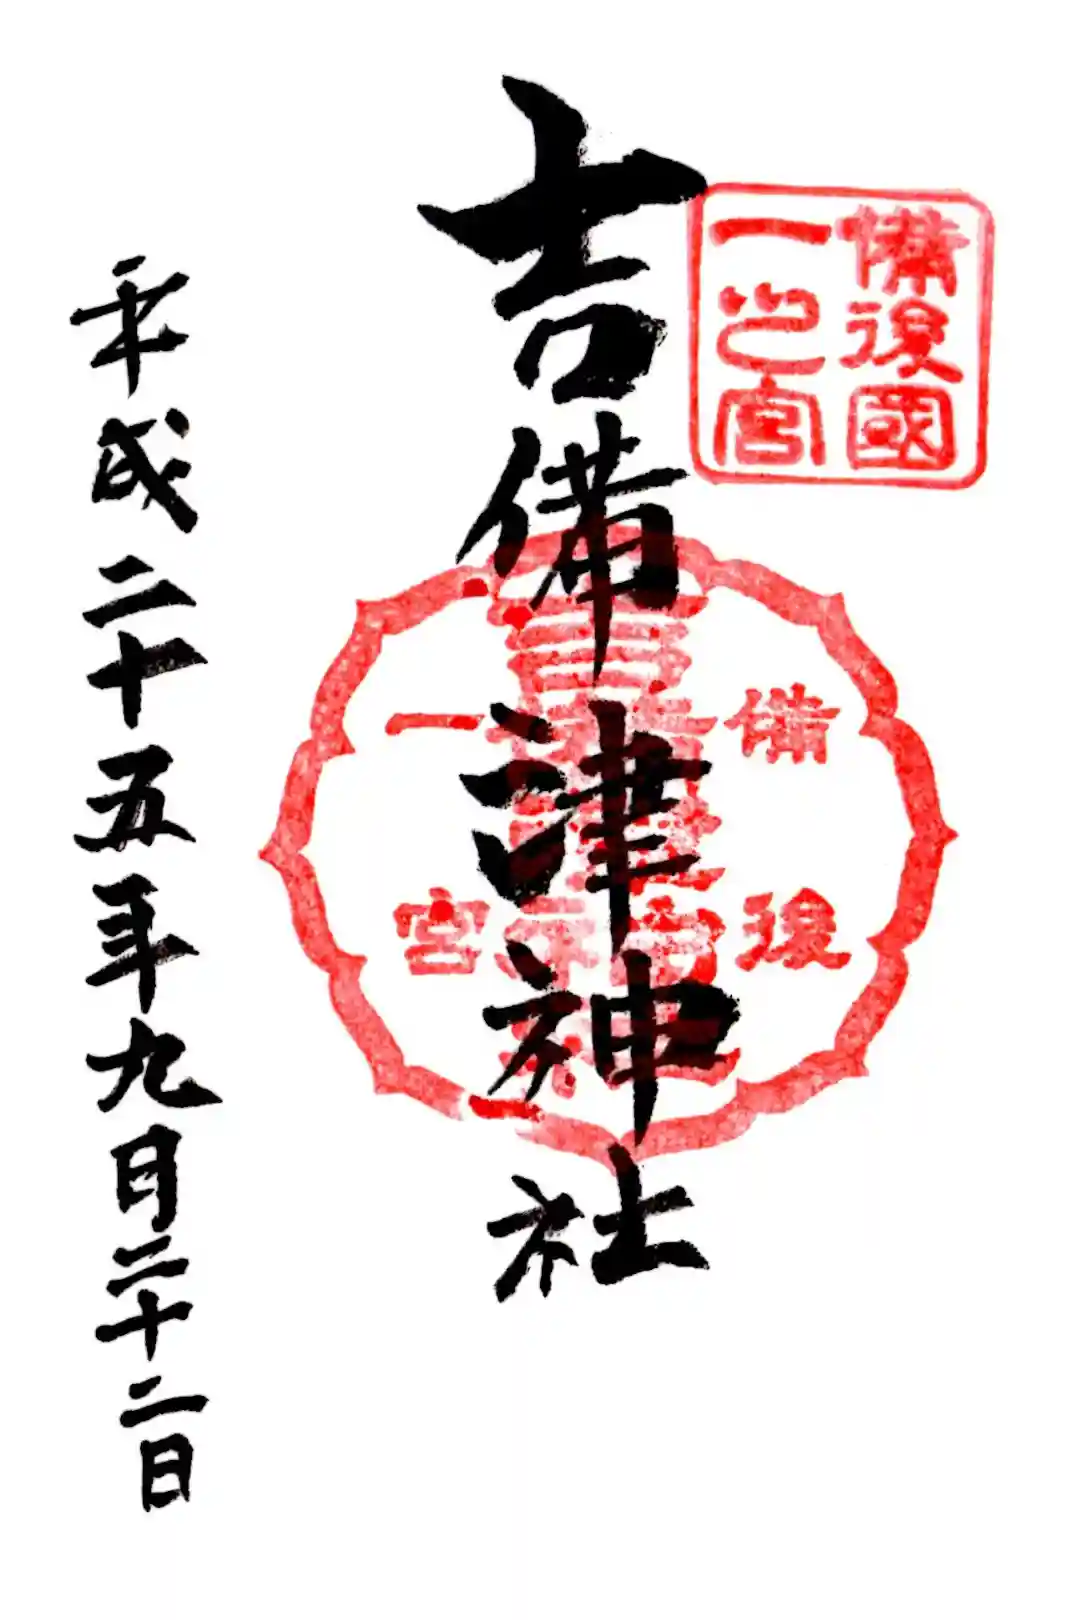 備後國
一之宮
吉備津神社
備後
一宮
平成二十五年九月二十二日